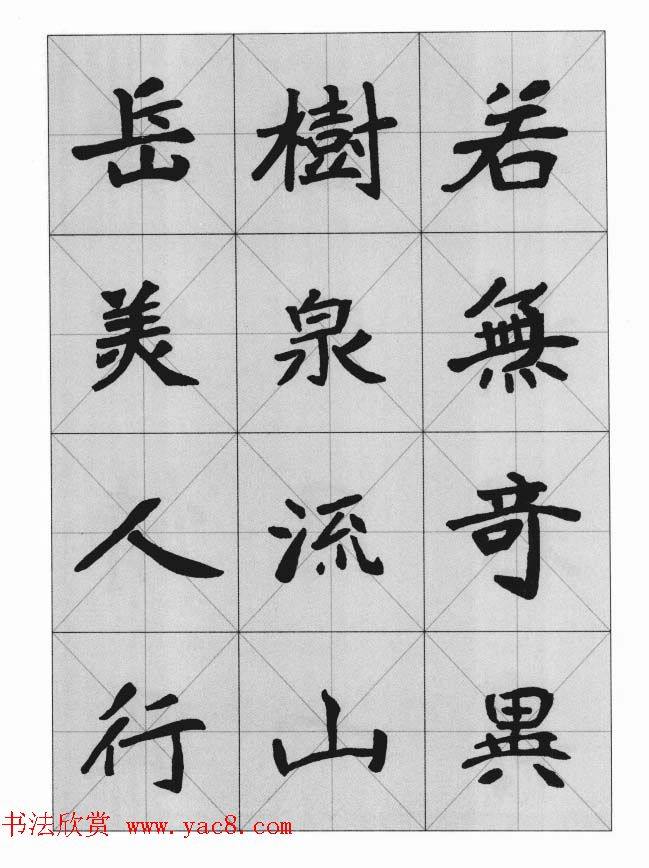 若無奇異
樹泉流山
岳美人行
书法欣赏 www.yac8.com